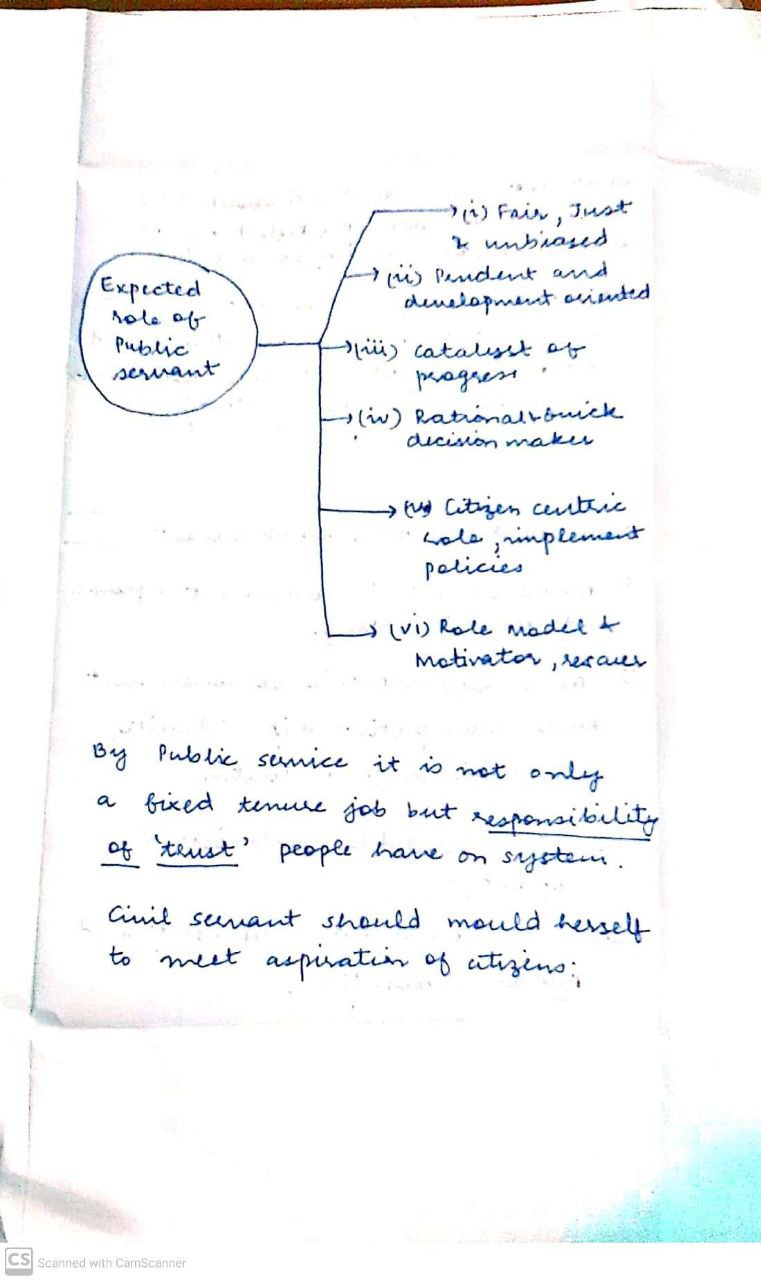 Expected
role of
Public
servant
(i) Fair, Just
& unbiased
(ii) Pendent and
development oriented
(iii) catalyst of
progress
(iv) Rational & Quick
decision maker
(v) Citizen centric
role, implement
policies
(vi) Role Model &
Motivator,
By Public service it is not only
a fixed tenure job but responsibility
of 'trust' people have on system.
Civil servant should mould herself
to meet aspiration of citizens.
CS Scanned with CamScanner